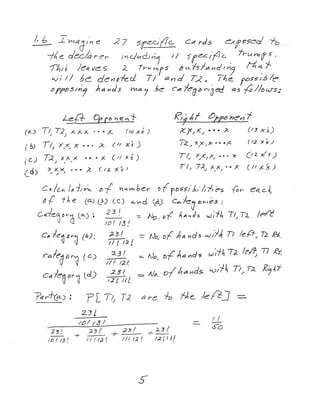 1.6 Imagine 27 specific cards exposed to
the declarer including 11 specific trumps.
This leaves 2 trumps outstanding that
will be denoted T1 and T2. The possible
opposing hands may be categorized as follows:
Left Opponent Right Opponent
(a) T1, T2, x x x ... x (11 x's) x x, x, ... x (13 x's)
(b) T1, x, x, x ... x (12 x's) T2, x x, x ... x (12 x's)
(c) T2, x x, x ... x (11 x's) T1, x, x, x, ... x (12 x's)
(d) x, x, x, ... x (13 x's) T1, T2, x x, ... x (11 x's)
Calculation of number of possibilities for each
of the (a) (b) (c) and (d) Categories:
Category (a): 23! / 10! 13! = No. of hands with T1, T2 left
Category (b): 23! / 11! 12! = No. of hands with T1 left, T2 Rt.
Category (c) 23! / 11! 12! = No. of hands with T2 left, T1 Rt.
Category (d) 23! / 12! 11! = No. of hands with T1, T2 Right
Part(a): P[T1, T2 are to the left] =
23! / 10! 13!
23! / 10! 13! + 23! / 11! 12! + 23! / 11! 12! + 23! / 12! 11! = 11 / 50
5